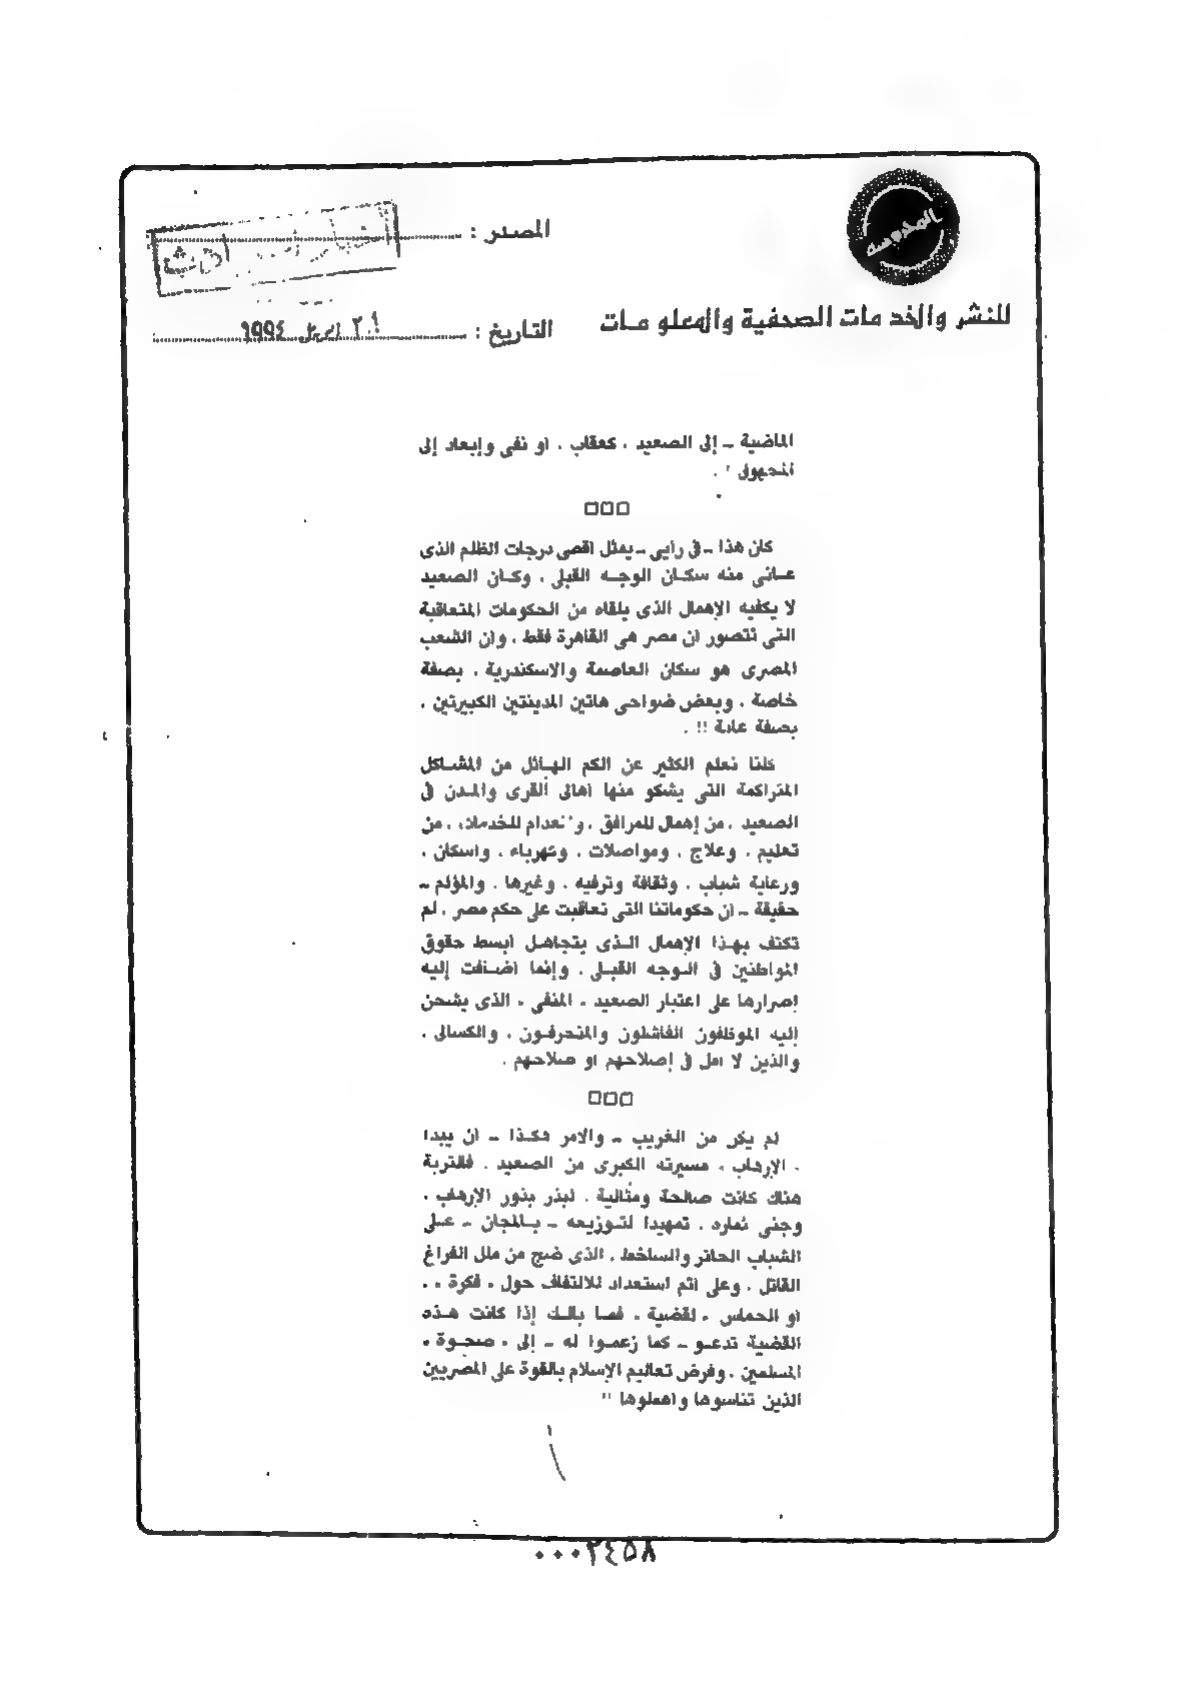 المدوسة
المصدر :
للنشر والخدمات الصحفية والمعلومات
التاريخ : ابريل ١٩٩٤
الماضية ـ إلى الصعيد ، كعقاب ، أو نفى وإبعاد إلى
المجهول ! .
□□□
كان هذا ـ فى رأيى ـ يمثل أقصى درجات الظلم الذى
عانى منه سكان الوجه القبلى ، وكان الصعيد
لا يكفيه الإهمال الذى يلقاه من الحكومات المتعاقبة
التى تتصور أن مصر هى القاهرة فقط ، وأن الشعب
المصرى هو سكان العاصمة والاسكندرية ، بصفة
خاصة ، وبعض ضواحى هاتين المدينتين الكبيرتين ،
بصفة عامة !! .
كلنا نعلم الكثير عن الكم الهائل من المشاكل
المتراكمة التى يشكو منها أهالى القرى والمدن فى
الصعيد ، من إهمال للمرافق ، وانعدام للخدمات ، من
تعليم ، وعلاج ، ومواصلات ، وكهرباء ، واسكان ،
ورعاية شباب ، وثقافة وترفيه ، وغيرها . والمؤلم ـ
حقيقة ـ أن حكوماتنا التى تعاقبت على حكم مصر ، لم
تكتف بهذا الإهمال الذى يتجاهل أبسط حقوق
المواطنين فى الوجه القبلى ، وإنما أضافت إليه
إصرارها على اعتبار الصعيد « المنفى » الذى يشحن
إليه الموظفون الفاشلون والمنحرفون ، والكسالى ،
والذين لا أمل فى إصلاحهم أو صلاحهم .
□□□
لم يكن من الغريب ـ والأمر هكذا ـ أن يبدأ
« الإرهاب » مسيرته الكبرى من الصعيد . فالتربة
هناك كانت صالحة ومثالية ، لبذر بذور الإرهاب ،
وجنى ثماره ، تمهيدا لتوزيعه ـ بالمجان ـ على
الشباب الحائر والساخط ، الذى ضج من ملل الفراغ
القاتل ، وعلى أتم استعداد للالتفاف حول « فكرة » ،
أو الحماس « لقضية » فما بالك إذا كانت هذه
القضية تدعو ـ كما زعموا له ـ إلى « صحوة »
المسلمين ، وفرض تعاليم الإسلام بالقوة على المصريين
الذين تناسوها وأهملوها !!
٠٠٠٢٤٥٨